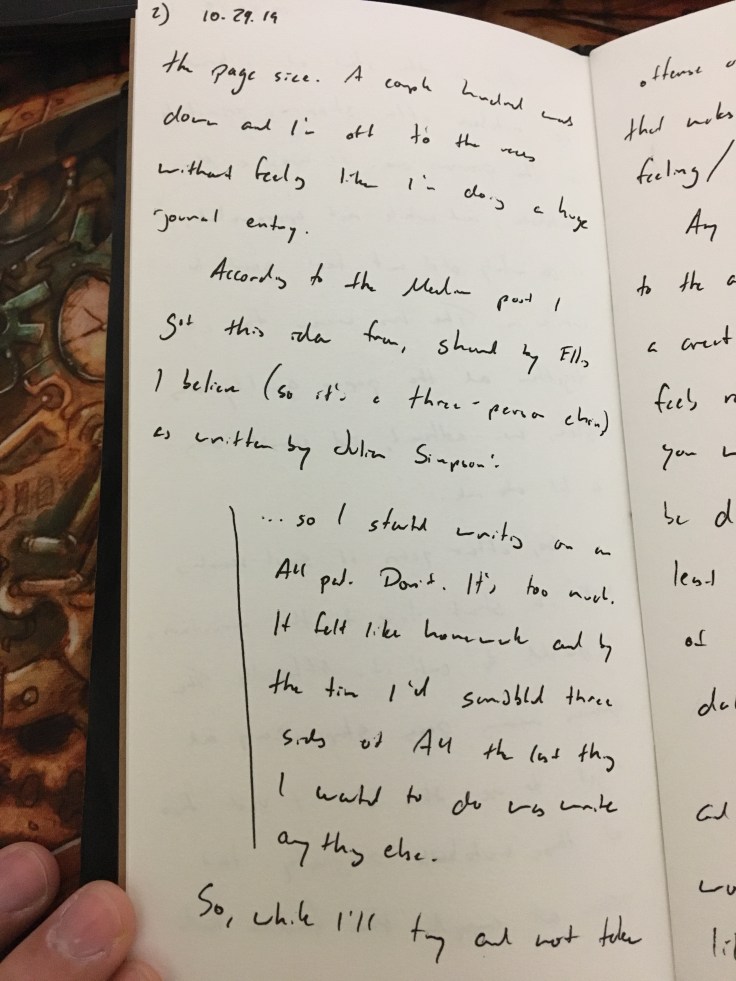 2) 10.29.19
the page size. A couple hundred words
down and I'm off to the races
without feeling like I'm doing a huge
journal entry.
According to the Medium post I
got this idea from, shared by Ellis
I believe (so it's a three-person chain)
as written by Julian Simpson:
... so I started writing on an
A4 pad. Don't. It's too much.
It felt like homework and by
the time I'd scribbled three
sides of A4 the last thing
I wanted to do was write
anything else.
So, while I'll try and not take
offense
that makes
feeling/
Any
to the
a
feels
you
be
least
of